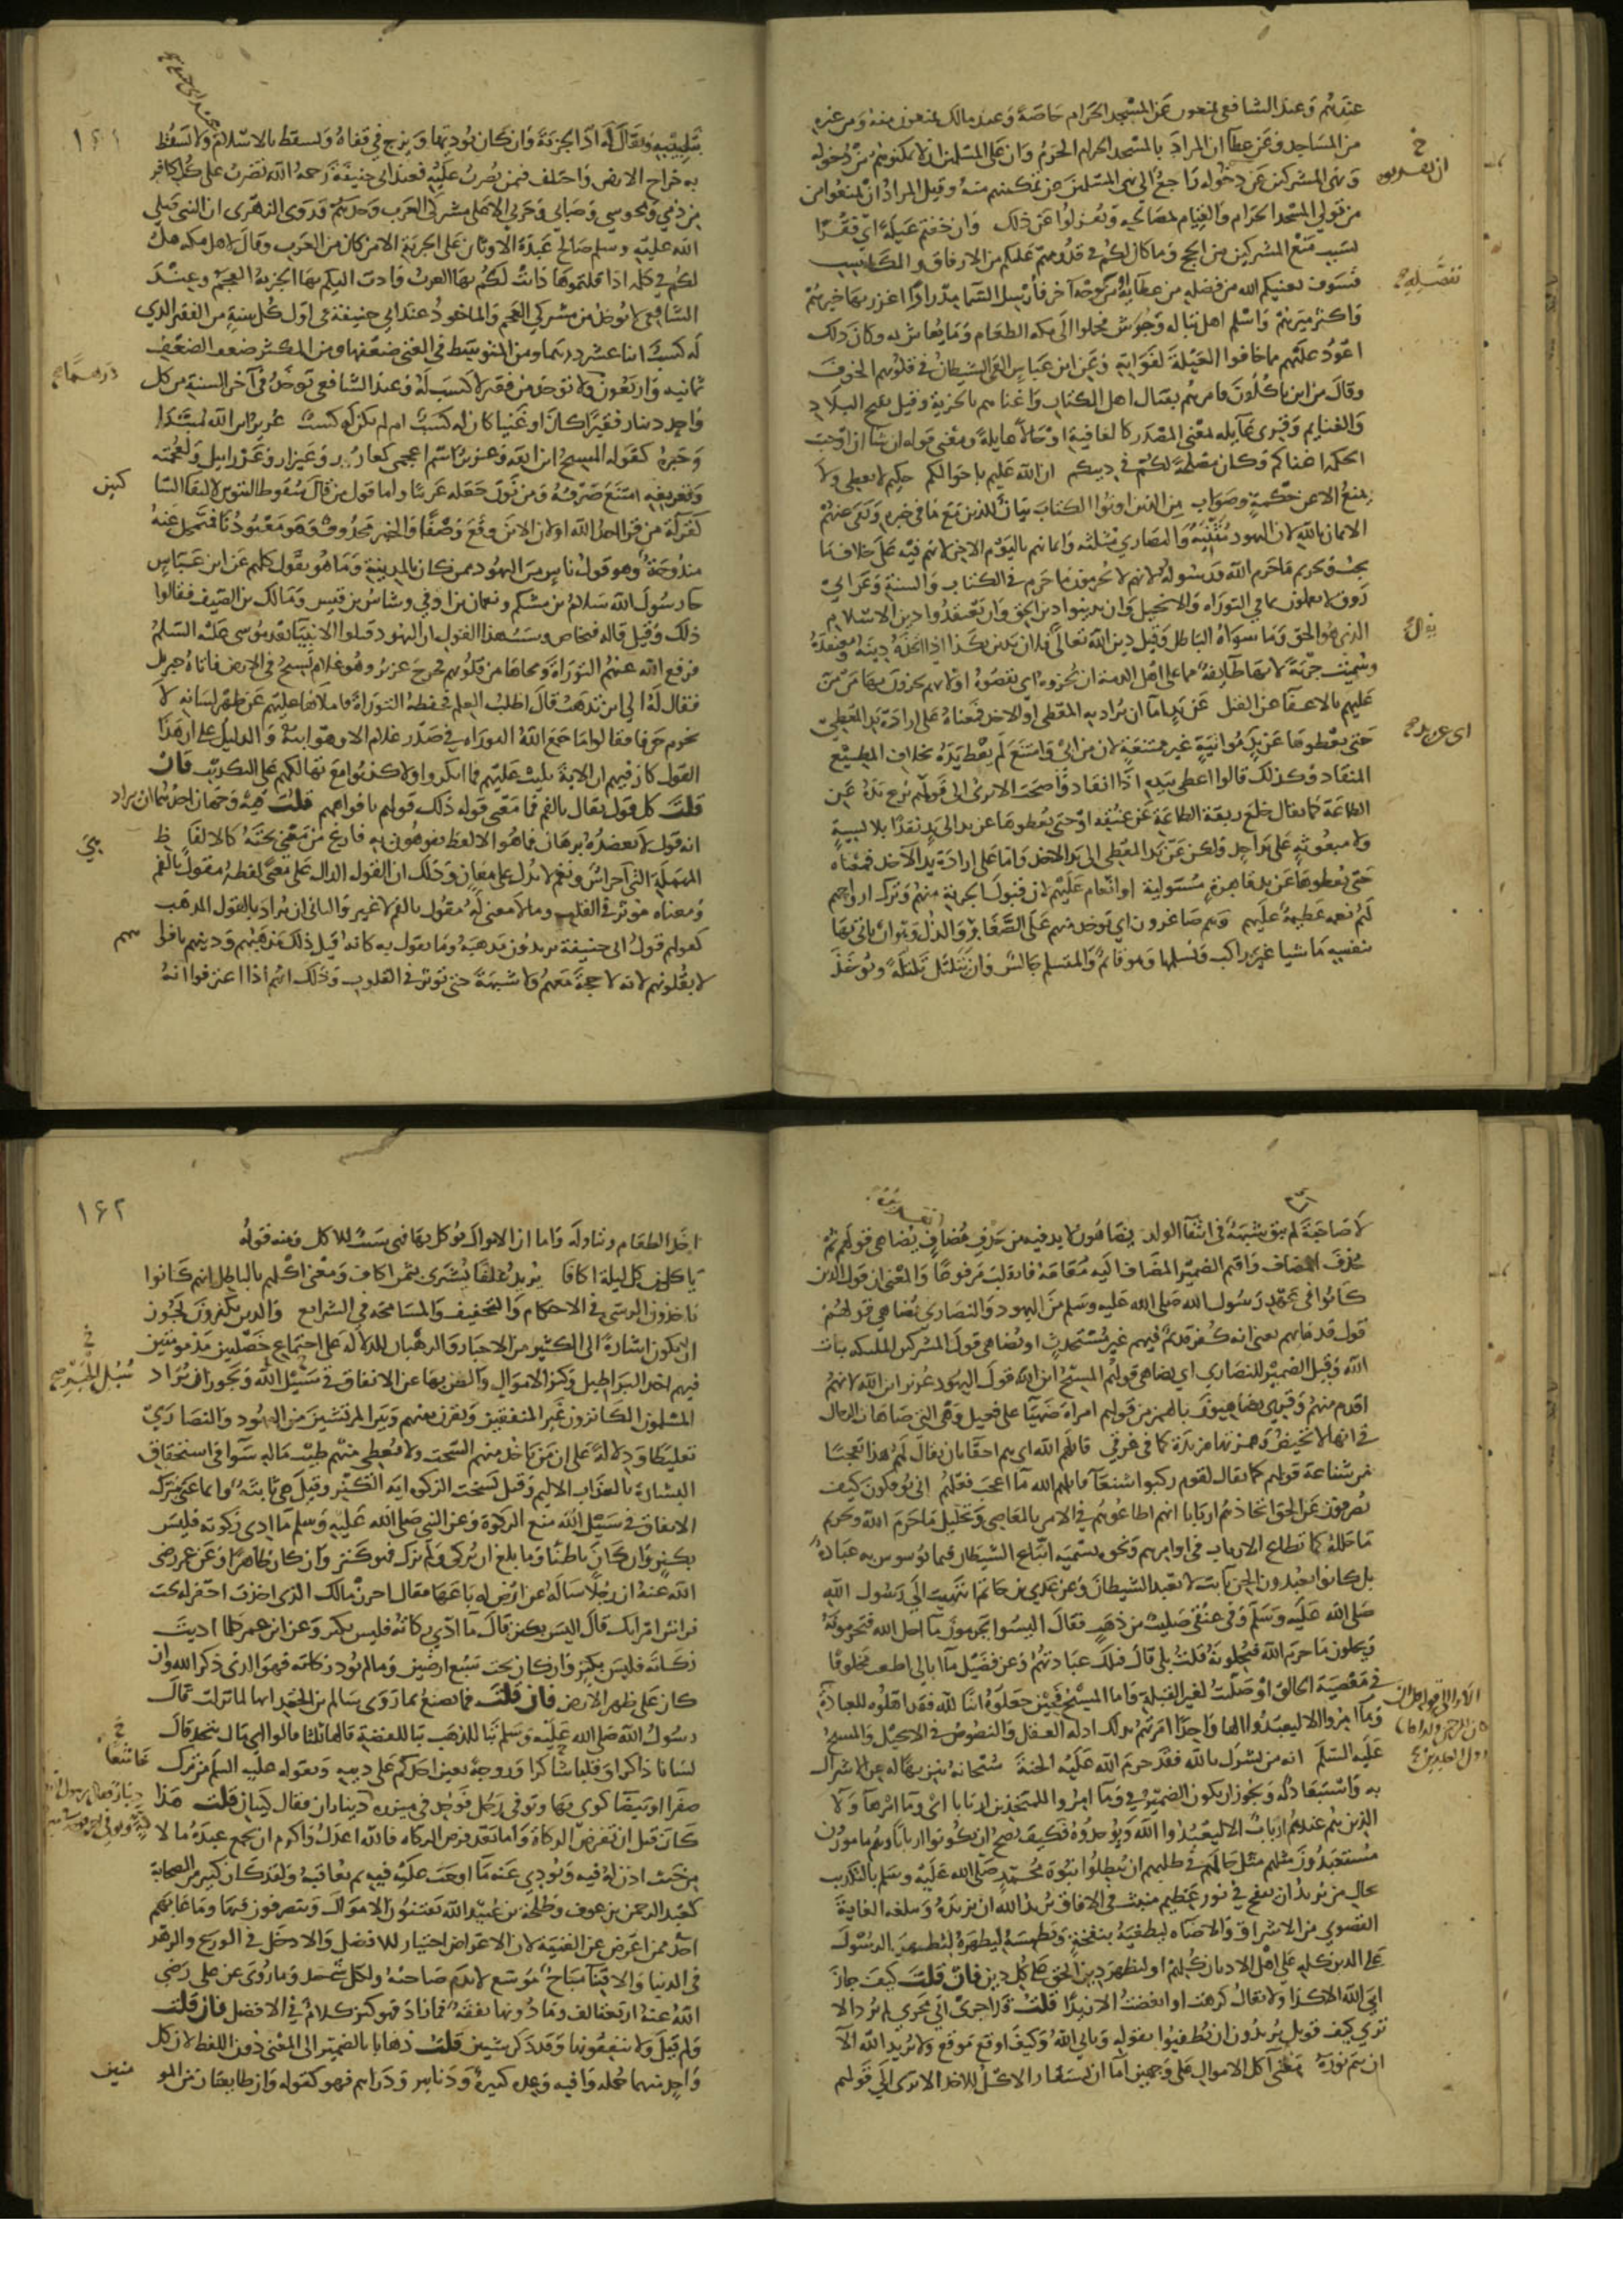 عندهم وعند الشافعي يمنعون عن المسجد الحرام خاصة وعند مالك يمنعون منه ومن غيره
من المساجد وعن عطا ان المراد بالمسجد الحرام الحرم وان على المسلمين ان لا يمكنوهم من دخوله
ونهى المشركين عن دخوله راجع الى نهى المسلمين عن تمكينهم منه وقيل المراد ان يمنعوا من
من تولي المسجد الحرام والقيام لمصالحه ويعزلوا عن ذلك وان خفتم عيلة اي فقرا
بسبب منع المشركين من الحج وما كان لكم في قدومهم عليكم من الارفاق والمكاسب
فسوف يغنيكم الله من فضله من عطايه من وجه آخر فارسل السما مدرارا اغزر بها خيرهم
واكثر ميرهم واسلم اهل تباله وجرش فحملوا الى مكه الطعام وما يعاش به وكان ذلك
اعود عليهم مما خافوا العيلة لفواته وعن ابن عباس القى الشيطان في قلوبهم الخوف
وقال من اين تاكلون فامرهم بقتال اهل الكتاب واغناهم بالجزية وقيل بفتح البلاد
والغنايم وقرى عايله بمعنى المصدر كالعافية او حالا عايلة ومعنى قوله ان شا ان اوجبت
الحكمة اغناكم وكان مصلحة لكم في دينكم ان الله عليم باحوالكم حكيم لا يعطي ولا
يمنع الا عن حكمة وصواب من الذين اوتوا الكتاب بيان للذين مع ما في حيزه ونفى عنهم
الايمان بالله لان اليهود مثنية والنصارى مثلثه وايمانهم باليوم الاخر لانهم فيه على خلاف ما
يجب وتحريم ما حرم الله ورسوله لانهم لا يحرمون ما حرم في الكتاب والسنة وعن ابي
روق لا يعملون بما في التوراه والانجيل وان يدينوا دين الحق وان يعتقدوا دين الاسلام
الذي هو الحق وما سواه الباطل وقيل دين الله يقال فلان يدين بكذا اذا اتخذه دينه ومعتقده
وسميت جزية لانها طايفة مما على اهل الذمة ان يجزوه اي يقضوه او لانهم يجزون بها من من
عليهم بالاعفآ عن القتل عن يد اما ان يراد يد المعطي او الاخذ فمعناه على ارادة يد المعطي
حتى يعطوها عن يد مواتية غير ممتنعة لان من ابى وامتنع لم يعط يده بخلاف المطيع
المنقاد وكذلك قالوا اعطى بيده اذا انقاد واصحب الا ترى الى قولهم نزع يده عن
الطاعة كما يقال خلع ربقة الطاعة عن عنقه او حتى يعطوها عن يد الى يد نقدا بلا نسية
ولا مبعوثة على يد احد ولكن عن يد المعطي الى يد الاخذ واما على ارادة يد الآخذ فمعناه
حتى يعطوها عن يد قاهرة مستولية او انعام عليهم لان قبول الجزية منهم وترك ارواحهم
لهم نعمه عظيمة عليهم وهم صاغرون اي توخذ منهم على الصغار والذل وهو ان ياتي بها
بنفسه ماشيا غير راكب ويسلمها وهو قائم والمتسلم جالس وان يتلتل تلتلة ويوخذ
بتلبيبه ويقال له اد الجزية وان كان يوديها ويزج في قفاه وتسقط بالاسلام ولا يسقط
به خراج الارض واختلف فيمن تضرب عليه فعند ابي حنيفة رحمه الله تضرب على كل كافر
من ذمي ومجوسي وصابي وحربي الا على مشركي العرب وحدهم وروى الزهري ان النبي صلى
الله عليه وسلم صالح عبدة الاوثان على الجزية الا من كان من العرب وقال لاهل مكه هل
لكم في كلمه اذا قلتموها دانت لكم بها العرب وادت اليكم بها الجزية العجم وعند
الشافعي لا توخذ من مشركي العجم والماخوذ عند ابي حنيفة في اول كل سنة من الفقير الذي
له كسب اثنا عشر درهما ومن المتوسط في الغنى ضعفها ومن المكثر ضعف الضعف
ثمانيه واربعون ولا توخذ من فقير لا كسب له وعند الشافعي توخذ في آخر السنة من كل
واحد دينار فقيرا كان او غنيا كان له كسب ام لم يكن له كسب عزير ابن الله مبتدا
وخبره كقوله المسيح ابن الله وعزير اسم اعجمي كعازر وعيزار وعزرايل ولعجمته
وتعريفه امتنع صرفه ومن نون جعله عربيا واما قول من قال سقوط التنوين لالتقا السا
كنين
كقرآة من قرا احد الله او لان الابن وقع وصفا والخبر محذوف وهو معبودنا فتمحل عنه
مندوحة وهو قول ناس من اليهود ممن كان بالمدينة وما هو بقول كلهم عن ابن عباس
جا رسول الله سلام بن مشكم ونعمان بن اوفى وشاس بن قيس ومالك بن الصيف فقالوا
ذلك وقيل قاله فنحاص وسبب هذا القول ان اليهود قتلوا الانبيآ بعد موسى عليه السلم
فرفع الله عنهم التوراة ومحاها من قلوبهم فخرج عزير وهو غلام يسيح في الارض فاتاه جبريل
فقال له الى اين تذهب قال اطلب العلم فحفظه التوراة فاملاها عليهم عن ظهر لسانه لا
يخرم حرفا فقالوا ما جمع الله التوراه في صدر غلام الا وهو ابنه والدليل على ان هذا
القول كان فيهم ان الاية تليت عليهم فما انكروا ولا كذبوا مع تهالكهم على التكذيب فان
قلت كل قول يقال بالفم فما معنى قوله ذلك قولهم بافواههم قلت فيه وجهان احدهما ان يراد
انه قول لا يعضده برهان فما هو الا لفظ يفوهون به فارغ من معنى تحته كالالفاظ
المهملة التي اجراس ونغم لا تدل على معان وذلك ان القول الدال على معنى لفظه مقول بالفم
ومعناه موثر في القلب وما لا معنى له مقول بالفم لا غير والثاني ان يراد بالقول المذهب
كقولهم قول ابي حنيفة يريدون مذهبه وما يقول به كانه قيل ذلك مذهبهم ودينهم بافوا
ههم
لا بقلوبهم لانه لا حجة معهم ولا شبهة حتى توثر في القلوب وذلك انهم اذا اعترفوا انه
لا صاحبة له لم تبق شبهة في انتفآ الولد يضاهون لا بد فيه من حذف مضاف يضاهي قولهم ثم
حذف المضاف واقيم الضمير المضاف اليه مقامه فانقلب مرفوعا والمعنى ان قول الذين
كانوا في عهد رسول الله صلى الله عليه وسلم من اليهود والنصارى يضاهي قولهم
قول قدمائهم يعني انه كفر قديم فيهم غير مستحدث او يضاهي قول المشركين الملئكه بنات
الله وقيل الضمير للنصارى اي يضاهي قولهم المسيح ابن الله قول اليهود عزير ابن الله لانهم
اقدم منهم وقرى يضاهئون بالهمز من قولهم امراة ضهيأ على فعيل وهي التي ضاهات الرجال
في انها لا تحيض وهمزتها مزيدة كما في غرقي قاتلهم الله اي هم احقا بان يقال لهم هذا تعجبا
من شناعة قولهم كما يقال لقوم ركبوا شنعآ قاتلهم الله ما اعجب فعلهم انى يوفكون كيف
يصرفون عن الحق اتخاذهم اربابا انهم اطاعوهم في الامر بالمعاصي وتحليل ما حرم الله وتحريم
ما حلله كما تطاع الارباب في اوامرهم ونحوه تسميه اتباع الشيطان فيما يوسوس به عباده
بل كانوا يعبدون الجن يآبت لا تعبد الشيطان وعن عدي بن حاتم انتهيت الى رسول الله
صلى الله عليه وسلم وفي عنقي صليب من ذهب فقال اليسوا يحرمون ما احل الله فتحرمونه
ويحلون ما حرم الله فتحلونه قلت بلى قال فتلك عبادتهم وعن فضيل ما ابالي اطعت مخلوقا
في معصية الخالق او صليت لغير القبلة واما المسيح فحين جعلوه ابنا لله فقد اهلوه للعبادة
وما امروا الا ليعبدوا الها واحدا امرتهم بذلك ادله العقل والنصوص في الانجيل والمسيح
عليه السلم انه من يشرك بالله فقد حرم الله عليه الجنة سبحانه تنزيه له عن الاشراك
به واستبعاد له ويجوز ان يكون الضمير في وما امروا للمتخذين اربابا اي وما امر هآولآ
الذين هم عندهم ارباب الا ليعبدوا الله ويوحدوه فكيف يصح ان يكونوا اربابا وهم مامورون
مستعبدون مثلهم مثل حالهم في طلبهم ان يبطلوا نبوة محمد صلى الله عليه وسلم بالتكذيب
بحال من يريد ان ينفخ في نور عظيم منبث في الافاق يريد الله ان يزيده ويبلغه الغاية
القصوى من الاشراق والاضآه ليطفيه بنفخة ويطمسه ليظهره ليظهر الرسول
على الدين كله على اهل الاديان كلهم او ليظهر دين الحق على كل دين فان قلت كيف جاز
ابى الله الا كذا ولا يقال كرهت او ابغضت الا زيدا قلت قد اجرى ابى مجرى لم يرد الا
ترى كيف قوبل يريدون ان يطفيوا بقوله ويابى الله وكيف اوقع موقع ولا يريد الله الا
ان يتم نوره معنى آكل الاموال على وجهين اما ان يستعار الاكل للاخذ الا ترى الى قولهم
١٦٢
اخذ الطعام وتناوله واما ان الاموال يوكل بها فهي سبب للاكل ومنه قوله
ياكلن كل ليلة اكافا يريد علفا يشترى بثمن اكاف ومعنى اكلهم بالباطل انهم كانوا
ياخذون الرشى في الاحكام والتخفيف والمسامحه في الشرايع والذين يكنزون يجوز
ان يكون اشارة الى الكثير من الاحبار والرهبان للدلالة على اجتماع خصلتين مذمومتين
فيهم اخذ البراطيل وكنز الاموال والضن بها عن الانفاق في سبيل الله ويجوز ان يراد
المسلمون الكانزون غير المنفقين ويقرن بينهم وبين المرتشين من اليهود والنصارى
تغليظا ودلالة على ان من ياخذ منهم السحت ولا يعطي منهم طيب ماله سوآ في استحقاق
البشارة بالعذاب الاليم وقيل نسخت الزكوه اية الكنز وقيل هي ثابتة وانما عنى بترك
الانفاق في سبيل الله منع الزكوة وعن النبي صلى الله عليه وسلم ما ادى زكوته فليس
بكنز وان كان باطنا وما بلغ ان يزكى ولم يزك فهو كنز وان كان ظاهرا وعن عمر رضى
الله عنه ان رجلا ساله عن ارض له باعها فقال احرز مالك الذي اخذت احفر له تحت
فراش امراتك قال اليس بكنز قال ما ادي زكاته فليس بكنز وعن ابن عمر كلما اديت
زكاته فليس بكنز وان كان تحت سبع ارضين وما لم تود زكاته فهو الذي ذكر الله وان
كان على ظهر الارض فان قلت فما تصنع بما روى سالم بن الجعد انها لما نزلت قال
رسول الله صلى الله عليه وسلم تبا للذهب تبا للفضة قالها ثلثا فقالوا اي مال نتخذ قال
لسانا ذاكرا وقلبا شاكرا وزوجة تعين احدكم على دينه وبقوله عليه السلم من ترك
صفرا او بيضا كوي بها وتوفي رجل فوجد في ميزره ديناران فقال كيتان قلت هذا
كان قبل ان تفرض الزكاة واما بعد فرض الزكاه فالله اعدل واكرم ان يجمع عبده مالا
من حيث اذن له فيه ويودي عنه ما اوجب عليه فيه ثم يعاقبه ولقد كان كثير من الصحابة
كعبد الرحمن بن عوف وطلحة بن عبيد الله يقتنون الاموال ويتصرفون فيها وما عابهم
احد ممن اعرض عن القنية لان الاعراض اختيار للافضل والادخل في الورع والزهد
في الدنيا والاقتنآ مباح موسع لا يذم صاحبه ولكل شي حد وما روى عن علي رضى
الله عنه اربعة الف وما دونها نفقة فما زاد فهو كنز كلام في الافضل فان قلت
ولم قيل ولا ينفقونها وقد ذكر شيين قلت ذهابا بالضمير الى المعنى دون اللفظ لان كل
واحد منهما جمله وافيه وعدة كثيرة ودنانير ودراهم فهو كقوله وان طايفتان من المو
منين